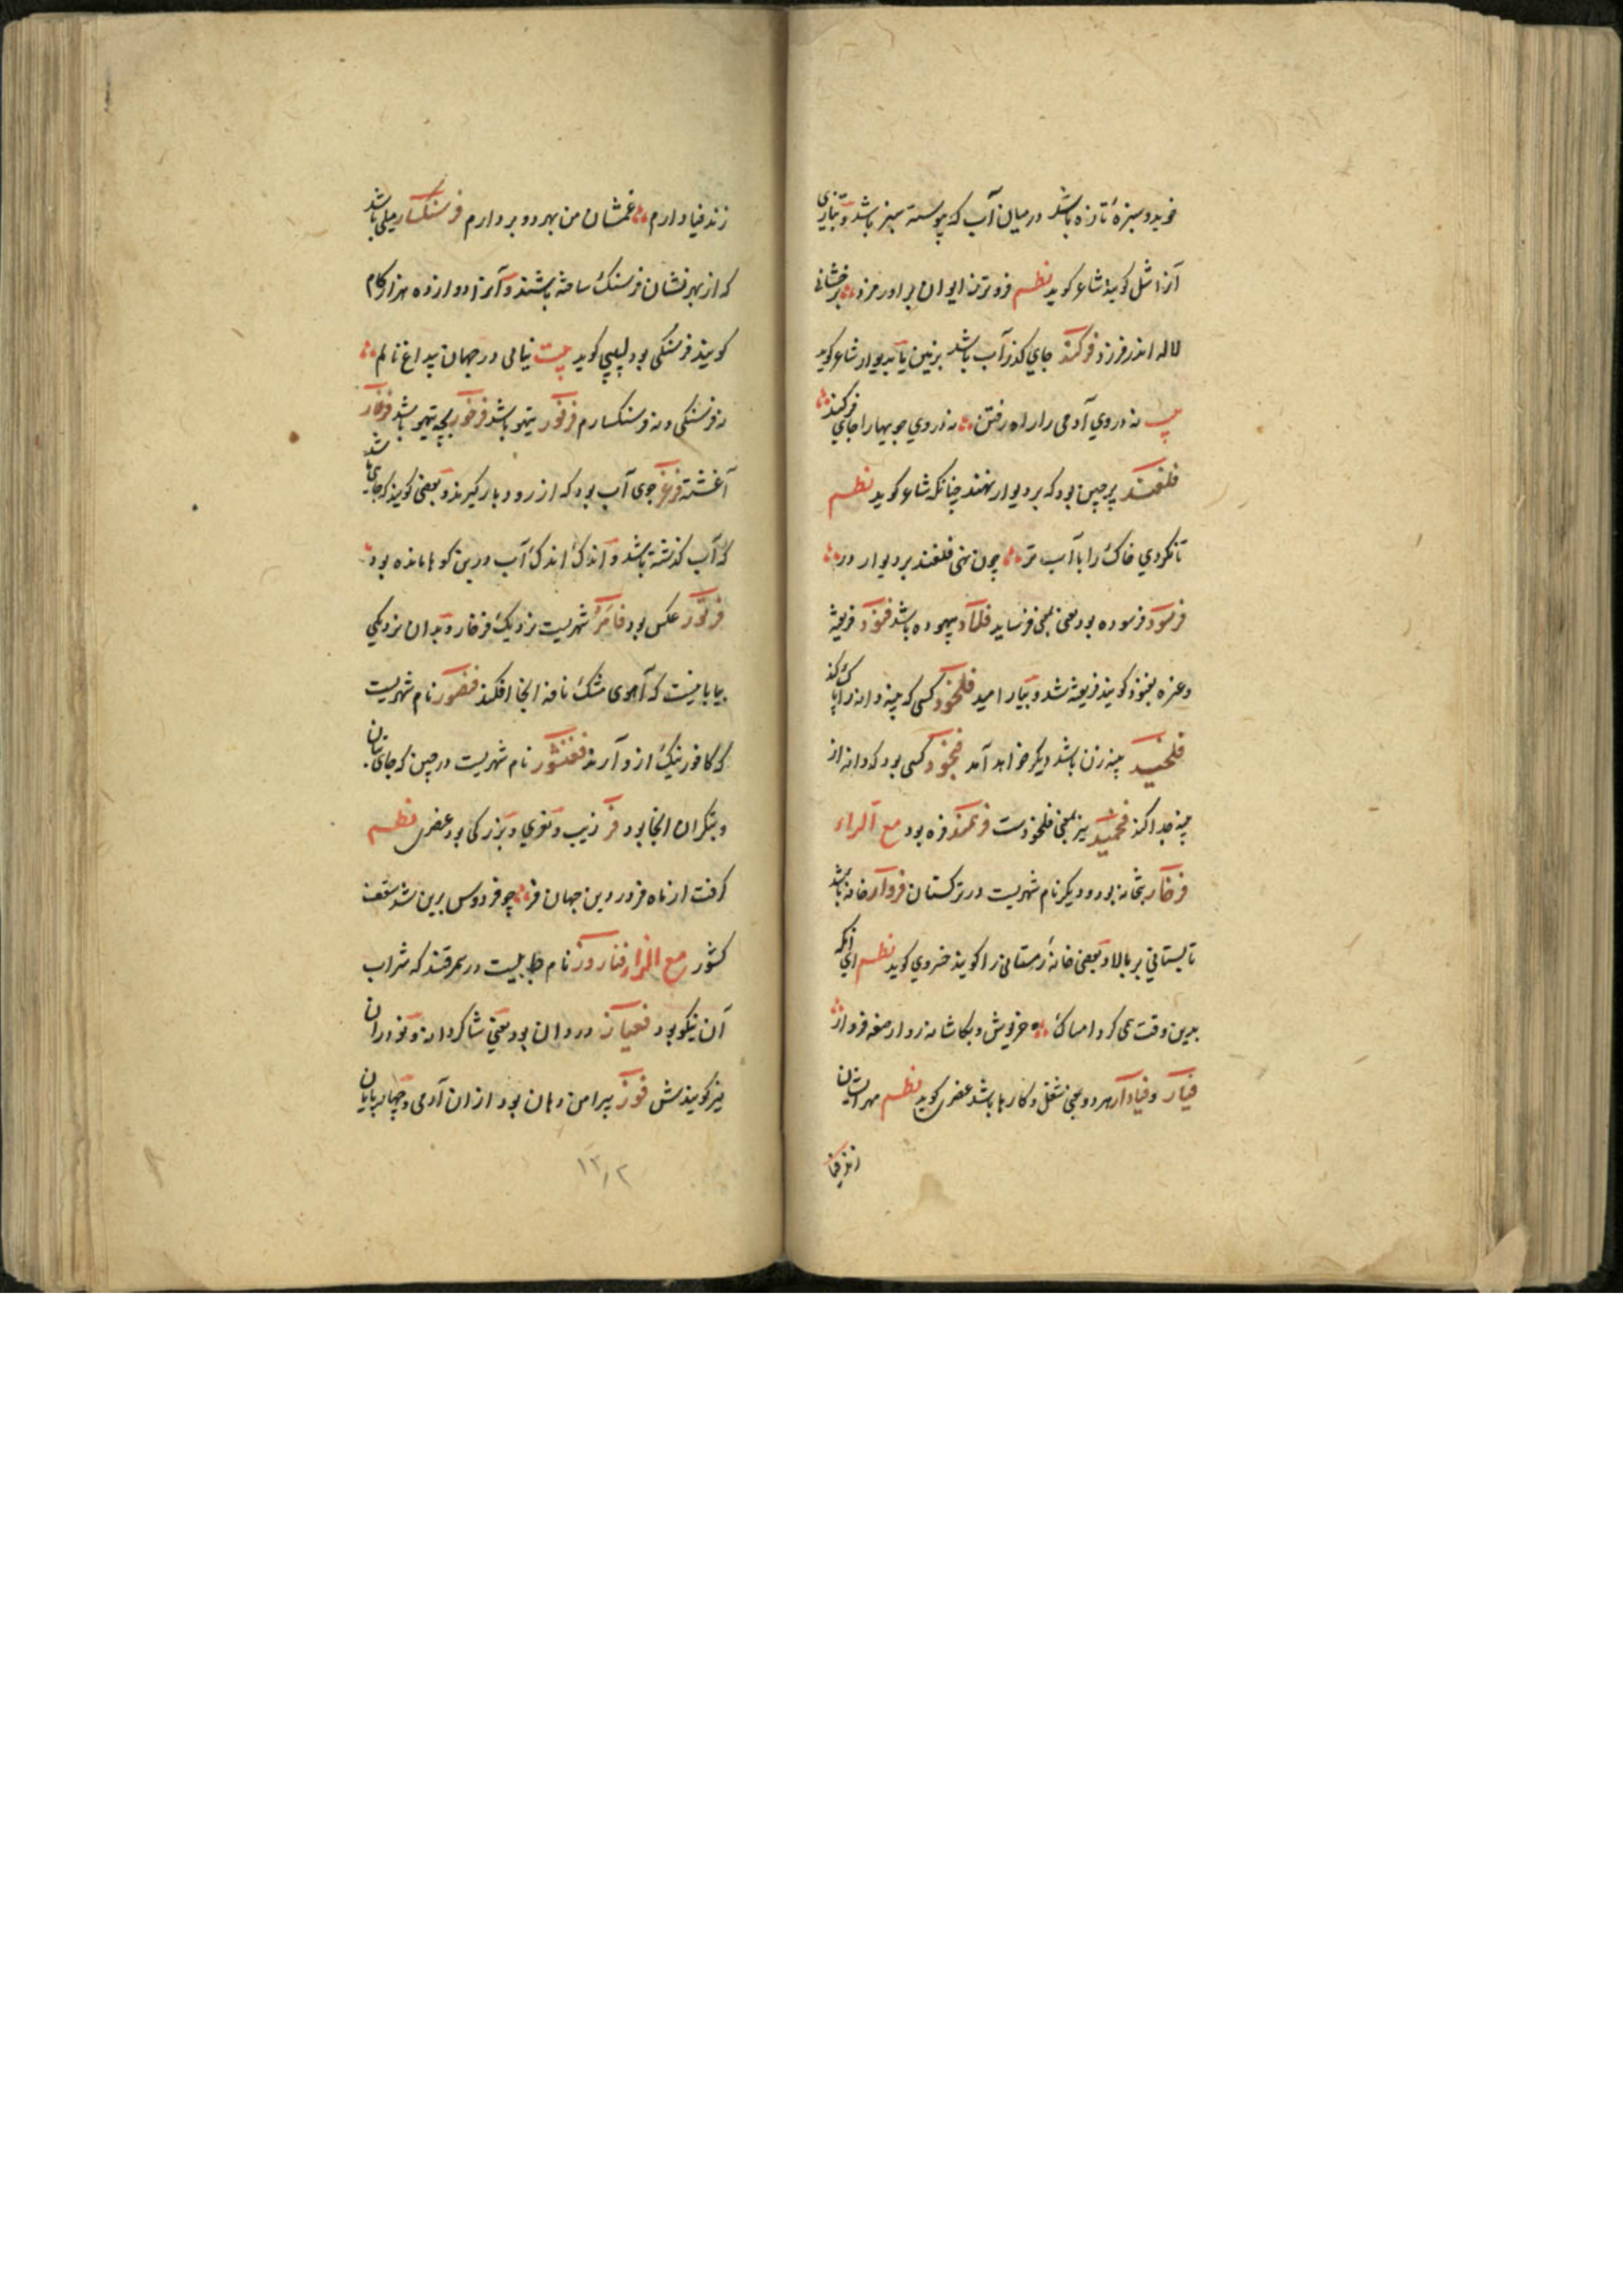 خوید و سبزهٔ تازه باشد در میان آب که پیوسته سبز باشد و بتازی
آنرا ثیل کویند شاعر کوید نظم فروترند ایوان براورمزد بدخشانی
لاله اندر فرزد فرکند جای کذر آب باشد بزمین یا بدیوار شاعر کوید
بیت نه در وی آدمی را راه رفتن نه در وی جویها را جای فرکند
فلغند پرچین بود که بر دیوار نهند چنانکه شاعر کوید نظم
تا نکردی خاک را با آب تر چون نهی فلغند بر دیوار در
فرسود فرسوده بود یعنی فرساید فلاد بیهوده باشد فنود فریفته
و غره بفنود کویند فریفته شد و بیارامید فلخود کسی که پنبه دانه را پاک کند
فلخید پنبه زن باشد دیکر خواهد آمد فلخود کسی بود که دانه از
پنبه جدا کند فخمید نیز بمعنی فلخودست فرغند فزه بود مع الراء
فرخار بتخانه بود و دیکر نام شهریست در ترکستان فروار خانه باشد
تابستانی بر بالا و بعضی خانهٔ زمستانی را کویند خسروی کوید نظم ای آنکه
بدین وقت همی کرد امساک خز پوش و بکاشانه رو از صفه فروار
فیار و فیاوار هر دو بمعنی شغل و کارها باشد عنصری کوید نظم مهر ایشان
زند فیا
زند فیاوارم غمشان من بهر دو بردارم فرسنکسار میلی باشد
که از بهر نشان فرسنک ساخته باشند و آنرا دوازده هزار کام
کویند فرسنکی بود لبیبی کوید بیت نیابی در جهان بی داغ نالم
نه فرسنکی و نه فرسنکسارم فرفور تیهو باشد فرخور بچه تیهو باشد فرغار
آغشته فرغر جوی آب بود که از رودبار کیرند و بعضی کویند که جایی باشد
که آب کذشته باشد و اندک اندک آب درین کوها مانده بود
فرتور عکس بود فامر شهریست نزدیک فرخار و بدان نزدیکی
بیابانیست که آهوی مشک نافه آنجا افکند فنصور نام شهریست
که کافور نیک ازو آرند فغنشور نام شهریست در چین که جای بتان
و بتکران آنجا بود فر زیب و نیکوی و بزرکی بود عنصری نظم
کرفت از ماه فروردین جهان فر چو فردوس برین شد هفت
کشور مع الزاء فناروز نام جاییست در سمرقند که شراب
آن نیکو بود فغیاز درودان بود یعنی شاکردانه و نودران
نیز کویندش فوز پیرامن دهان بود از آن آدمی و چهارپایان